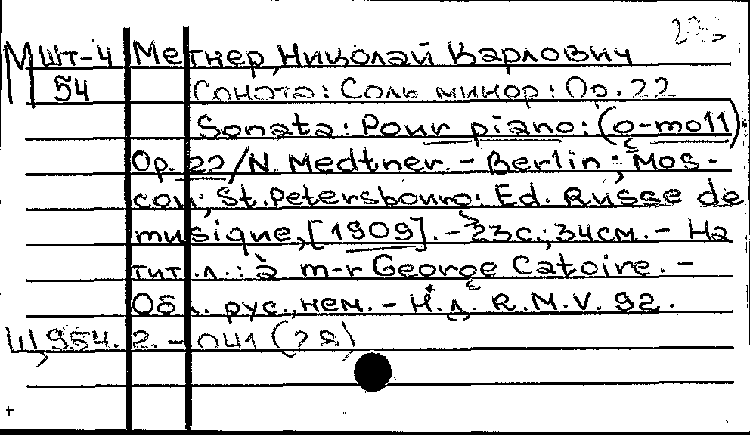 МШТ-4 Метнер, Николай Карлович
54 Соната: Соль минор: Op. 22
Sonata: Pour piano: (g-moll).
Op. 22/N. Medtner. - Berlin; Mos-
cou; St. Petersbourg: Ed. Russe de
musique, [1909]. - 23с.; 34см. - На
тит. л.: à m-r George Catoire. -
Обл. рус., нем. - Н.д. R.M.V. 92.
Щ 954.2. - 041